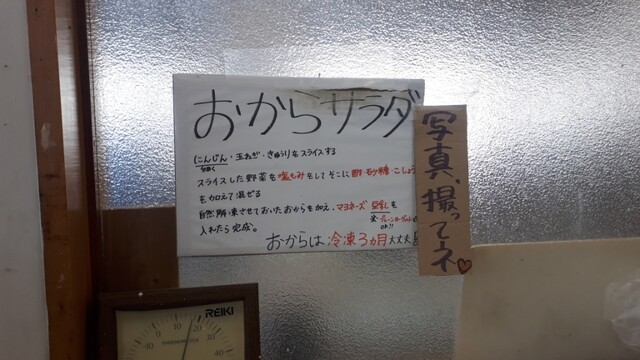 おからサラダ
にんじん・玉ねぎ・きゅうりをスライスする
スライスした野菜を塩もみをしてそこに酢・砂糖・こしょう
を加えて混ぜる
自然解凍させておいたおからを加え、マヨネーズ 豆乳を
又、プレーンヨーグルト
OK!!
入れたら完成。
おからは冷凍3ヵ月大丈夫
写真、撮ってネ♡
REIKI
THERMOMETER
-10 0 10 20 30 40